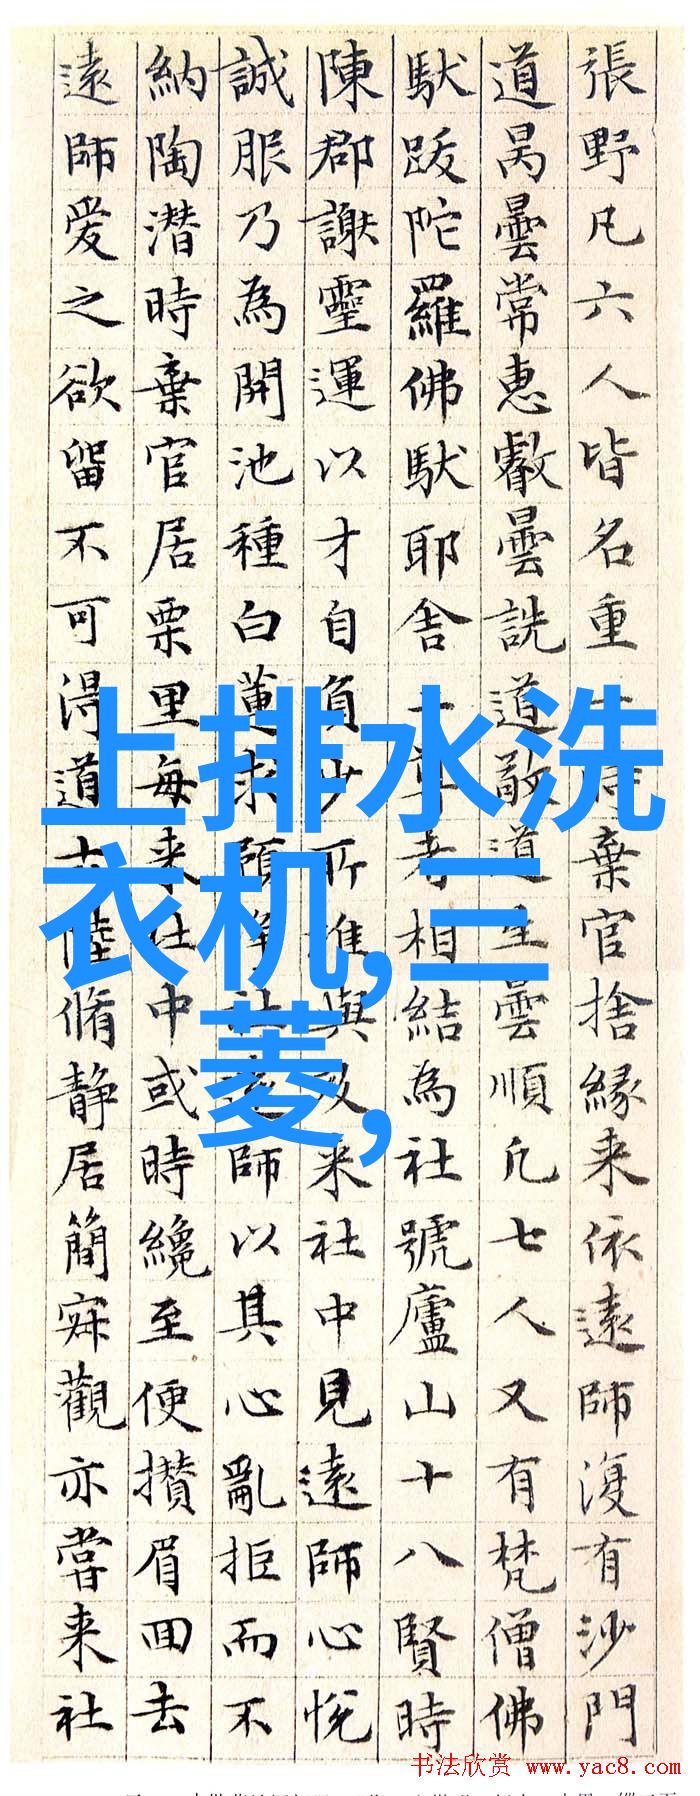 張野凡六人皆名重一時棄官捨緣来依遠師渡有沙門
道昺曇常惠叡曇詵道敬道生曇順凡七人又有梵僧佛
馱跋陀羅佛馱耶舍二尊者相結為社號廬山十八賢時
陳郡謝靈運以才自負少所推與及来社中見遠師心悅
誠服乃為開池種白蓮求預淨社遠師以其心亂拒而不
納陶潜時棄官居栗里每来社中或時纔至便攢眉回去
遠師爱之欲留不可得道士陸脩静居簡寂觀亦嘗来社
上排水洗
衣机,三
菱,
书法欣赏 www.yac8.com